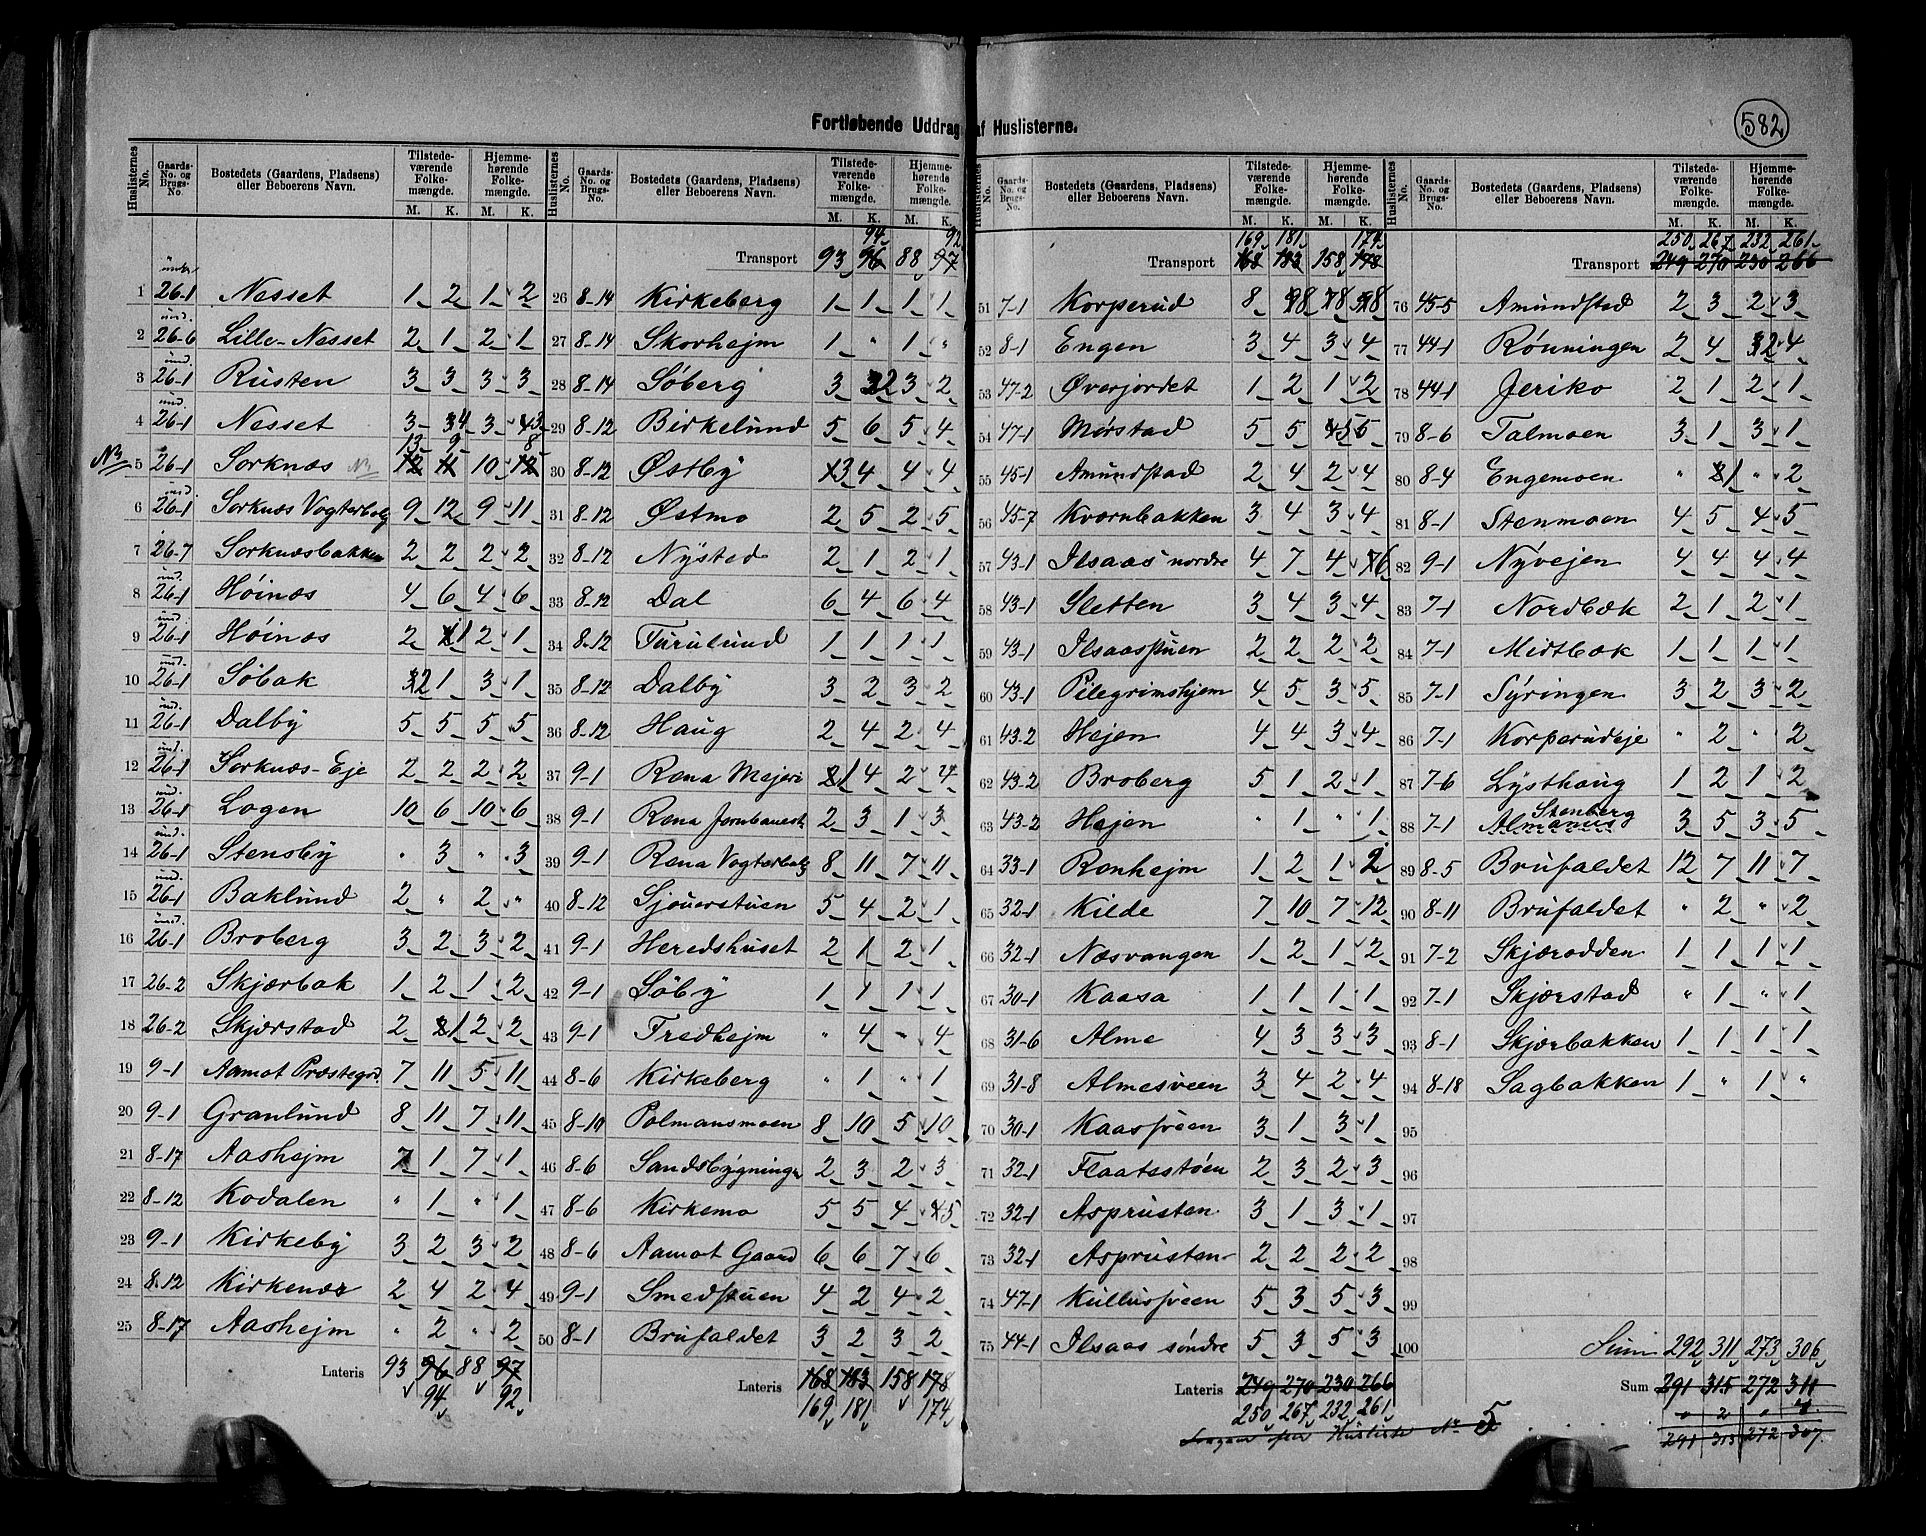 582
Fortløbende Uddrag af Huslisterne.
Huslisternes No. | Gaards-No. og Brugs-No. | Bostedets (Gaardens, Pladsens) eller Beboerens Navn. | Tilstedeværende Folkemængde. M. K. | Hjemmehørende Folkemængde. M. K.
1 | under 26-1 | Nesset | 1 | 2 | 1 | 2
2 | und. 26-6 | Lille-Nesset | 2 | 1 | 2 | 1
3 | und. 26-1 | Rusten | 3 | 3 | 3 | 3
4 | und. 26-1 | Nesset | 3 | 4 | 3 | 3
5 | 26-1 | Sorknæs | 13 | 9 | 10 | 8
6 | und. 26-1 | Sorknæs Vogterbolig | 9 | 12 | 9 | 11
7 | 26-7 | Sorknæsbakken | 2 | 2 | 2 | 2
8 | und. 26-1 | Høinæs | 4 | 6 | 4 | 6
9 | und. 26-1 | Høinæs | 2 | 1 | 2 | 1
10 | und. 26-1 | Søbak | 2 | 1 | 3 | 1
11 | und. 26-1 | Dalby | 5 | 5 | 5 | 5
12 | und. 26-1 | Sorknæs-Eje | 2 | 2 | 2 | 2
13 | und. 26-1 | Logen | 10 | 6 | 10 | 6
14 | und. 26-1 | Stensby | " | 3 | " | 3
15 | und. 26-1 | Baklund | 2 | " | 2 | "
16 | und. 26-1 | Broberg | 3 | 2 | 3 | 2
17 | 26-2 | Skjærbak | 1 | 2 | 1 | 2
18 | 26-2 | Skjærstad | 2 | 1 | 2 | 2
19 | 9-1 | Aamot Præstegrd | 7 | 11 | 5 | 11
20 | 9-1 | Granlund | 8 | 11 | 7 | 11
21 | 8-17 | Aashejm | 7 | 1 | 7 | 1
22 | 8-12 | Kodalen | " | 1 | " | 1
23 | 9-1 | Kirkeby | 3 | 2 | 3 | 2
24 | 8-12 | Kirkenær | 2 | 4 | 2 | 4
25 | 8-17 | Aashejm | " | 2 | " | 2
Lateris 93 96 88 97
94 92
Huslisternes No. | Gaards-No. og Brugs-No. | Bostedets (Gaardens, Pladsens) eller Beboerens Navn. | Tilstedeværende Folkemængde. M. K. | Hjemmehørende Folkemængde. M. K.
94 92
Transport 93 96 88 97
26 | 8-14 | Kirkeberg | 1 | 1 | 1 | 1
27 | 8-14 | Skorhejm | 1 | " | 1 | "
28 | 8-14 | Søberg | 3 | 2 | 3 | 2
29 | 8-12 | Birkelund | 5 | 6 | 5 | 4
30 | 8-12 | Østby | 3 | 4 | 4 | 4
31 | 8-12 | Østmo | 2 | 5 | 2 | 5
32 | 8-12 | Nysted | 2 | 1 | 2 | 1
33 | 8-12 | Dal | 6 | 4 | 6 | 4
34 | 8-12 | Furulund | 1 | 1 | 1 | 1
35 | 8-12 | Dalby | 3 | 2 | 3 | 2
36 | 8-12 | Haug | 2 | 4 | 2 | 4
37 | 9-1 | Rena Mejeri | 1 | 4 | 2 | 4
38 | 9-1 | Rena Jernbanest. | 2 | 3 | 1 | 3
39 | 9-1 | Rena Vogterbolig | 8 | 11 | 7 | 11
40 | 8-12 | Sjouerstuen | 5 | 4 | 2 | 1
41 | 9-1 | Heredshuset | 2 | 1 | 2 | 1
42 | 9-1 | Søby | 1 | 1 | 1 | 1
43 | 9-1 | Fredhejm | " | 4 | " | 4
44 | 8-6 | Kirkeberg | " | 1 | " | 1
45 | 8-10 | Polmansmoen | 8 | 10 | 5 | 10
46 | 8-6 | Sandsbygningen | 2 | 3 | 2 | 3
47 | 8-6 | Kirkemo | 5 | 5 | 4 | 5
48 | 8-6 | Aamot Gaard | 6 | 6 | 7 | 6
49 | 9-1 | Smedstuen | 4 | 2 | 4 | 2
50 | 8-1 | Brufaldet | 3 | 2 | 3 | 2
Lateris 168 183 158 178
169 181 174
Huslisternes No. | Gaards-No. og Brugs-No. | Bostedets (Gaardens, Pladsens) eller Beboerens Navn. | Tilstedeværende Folkemængde. M. K. | Hjemmehørende Folkemængde. M. K.
169 181 174
Transport 168 183 158 178
51 | 7-1 | Korperud | 8 | 8 | 8 | 8
52 | 8-1 | Engen | 3 | 4 | 3 | 4
53 | 47-2 | Øverjordet | 1 | 2 | 1 | 2
54 | 47-1 | Mørstad | 5 | 5 | 5 | 5
55 | 45-1 | Amundstad | 2 | 4 | 2 | 4
56 | 45-7 | Kvernbakken | 3 | 4 | 3 | 4
57 | 43-1 | Ilsaas nordre | 4 | 7 | 4 | 6
58 | 43-1 | Sletten | 3 | 4 | 3 | 4
59 | 43-1 | Ilsaasstuen | 2 | 2 | 2 | 2
60 | 43-1 | Pilegrimshjem | 4 | 5 | 3 | 5
61 | 43-2 | Hejen | 4 | 4 | 3 | 4
62 | 43-2 | Broberg | 5 | 1 | 2 | 1
63 | 43-2 | Hejen | " | 1 | " | 1
64 | 33-1 | Ronhejm | 1 | 2 | 1 | 2
65 | 32-1 | Kilde | 7 | 10 | 7 | 12
66 | 32-1 | Næsvangen | 1 | 2 | 1 | 2
67 | 30-1 | Kaasa | 1 | 1 | 1 | 1
68 | 31-6 | Alme | 4 | 3 | 3 | 3
69 | 31-8 | Almesveen | 3 | 4 | 2 | 4
70 | 30-1 | Kaassveen | 3 | 1 | 3 | 1
71 | 32-1 | Flaatestøen | 2 | 3 | 2 | 3
72 | 32-1 | Asprusten | 3 | 1 | 3 | 1
73 | 32-1 | Asprusten | 2 | 2 | 2 | 2
74 | 47-1 | Kullussveen | 5 | 3 | 5 | 3
75 | 44-1 | Ilsaas søndre | 5 | 3 | 5 | 3
Lateris 249 270 230 266
250 267 232 261
Husliste No 5
Huslisternes No. | Gaards-No. og Brugs-No. | Bostedets (Gaardens, Pladsens) eller Beboerens Navn. | Tilstedeværende Folkemængde. M. K. | Hjemmehørende Folkemængde. M. K.
250 267 232 261
Transport 249 270 230 266
76 | 45-5 | Amundstad | 2 | 3 | 2 | 3
77 | 44-1 | Rønningen | 2 | 4 | 2 | 4
78 | 44-1 | Jeriko | 2 | 1 | 2 | 1
79 | 8-6 | Talmoen | 3 | 1 | 3 | 1
80 | 8-4 | Engemoen | " | 1 | " | 2
81 | 8-1 | Stenmoen | 4 | 5 | 4 | 5
82 | 9-1 | Nyvejen | 4 | 4 | 4 | 4
83 | 7-1 | Nordbæk | 2 | 1 | 2 | 1
84 | 7-1 | Midtbæk | 1 | 1 | 1 | 1
85 | 7-1 | Syringen | 3 | 2 | 3 | 2
86 | 7-1 | Korperudeje | " | 2 | " | 2
87 | 7-6 | Lysthaug | 1 | 2 | 1 | 2
88 | 7-1 | Stenberg Almanus | 3 | 5 | 3 | 5
89 | 8-5 | Brufaldet | 12 | 7 | 11 | 7
90 | 8-11 | Brufaldet | " | 2 | " | 2
91 | 7-2 | Skjærodden | 1 | 1 | 1 | 1
92 | 7-1 | Skjærstad | " | 1 | " | 1
93 | 8-1 | Skjærbakken | 1 | 1 | 1 | 1
94 | 8-18 | Sagbakken | 1 | " | 1 | "
95
96
97
98
99
100
Sum 292 311 273 306
Sum 291 315 272 311
291 313 272 307